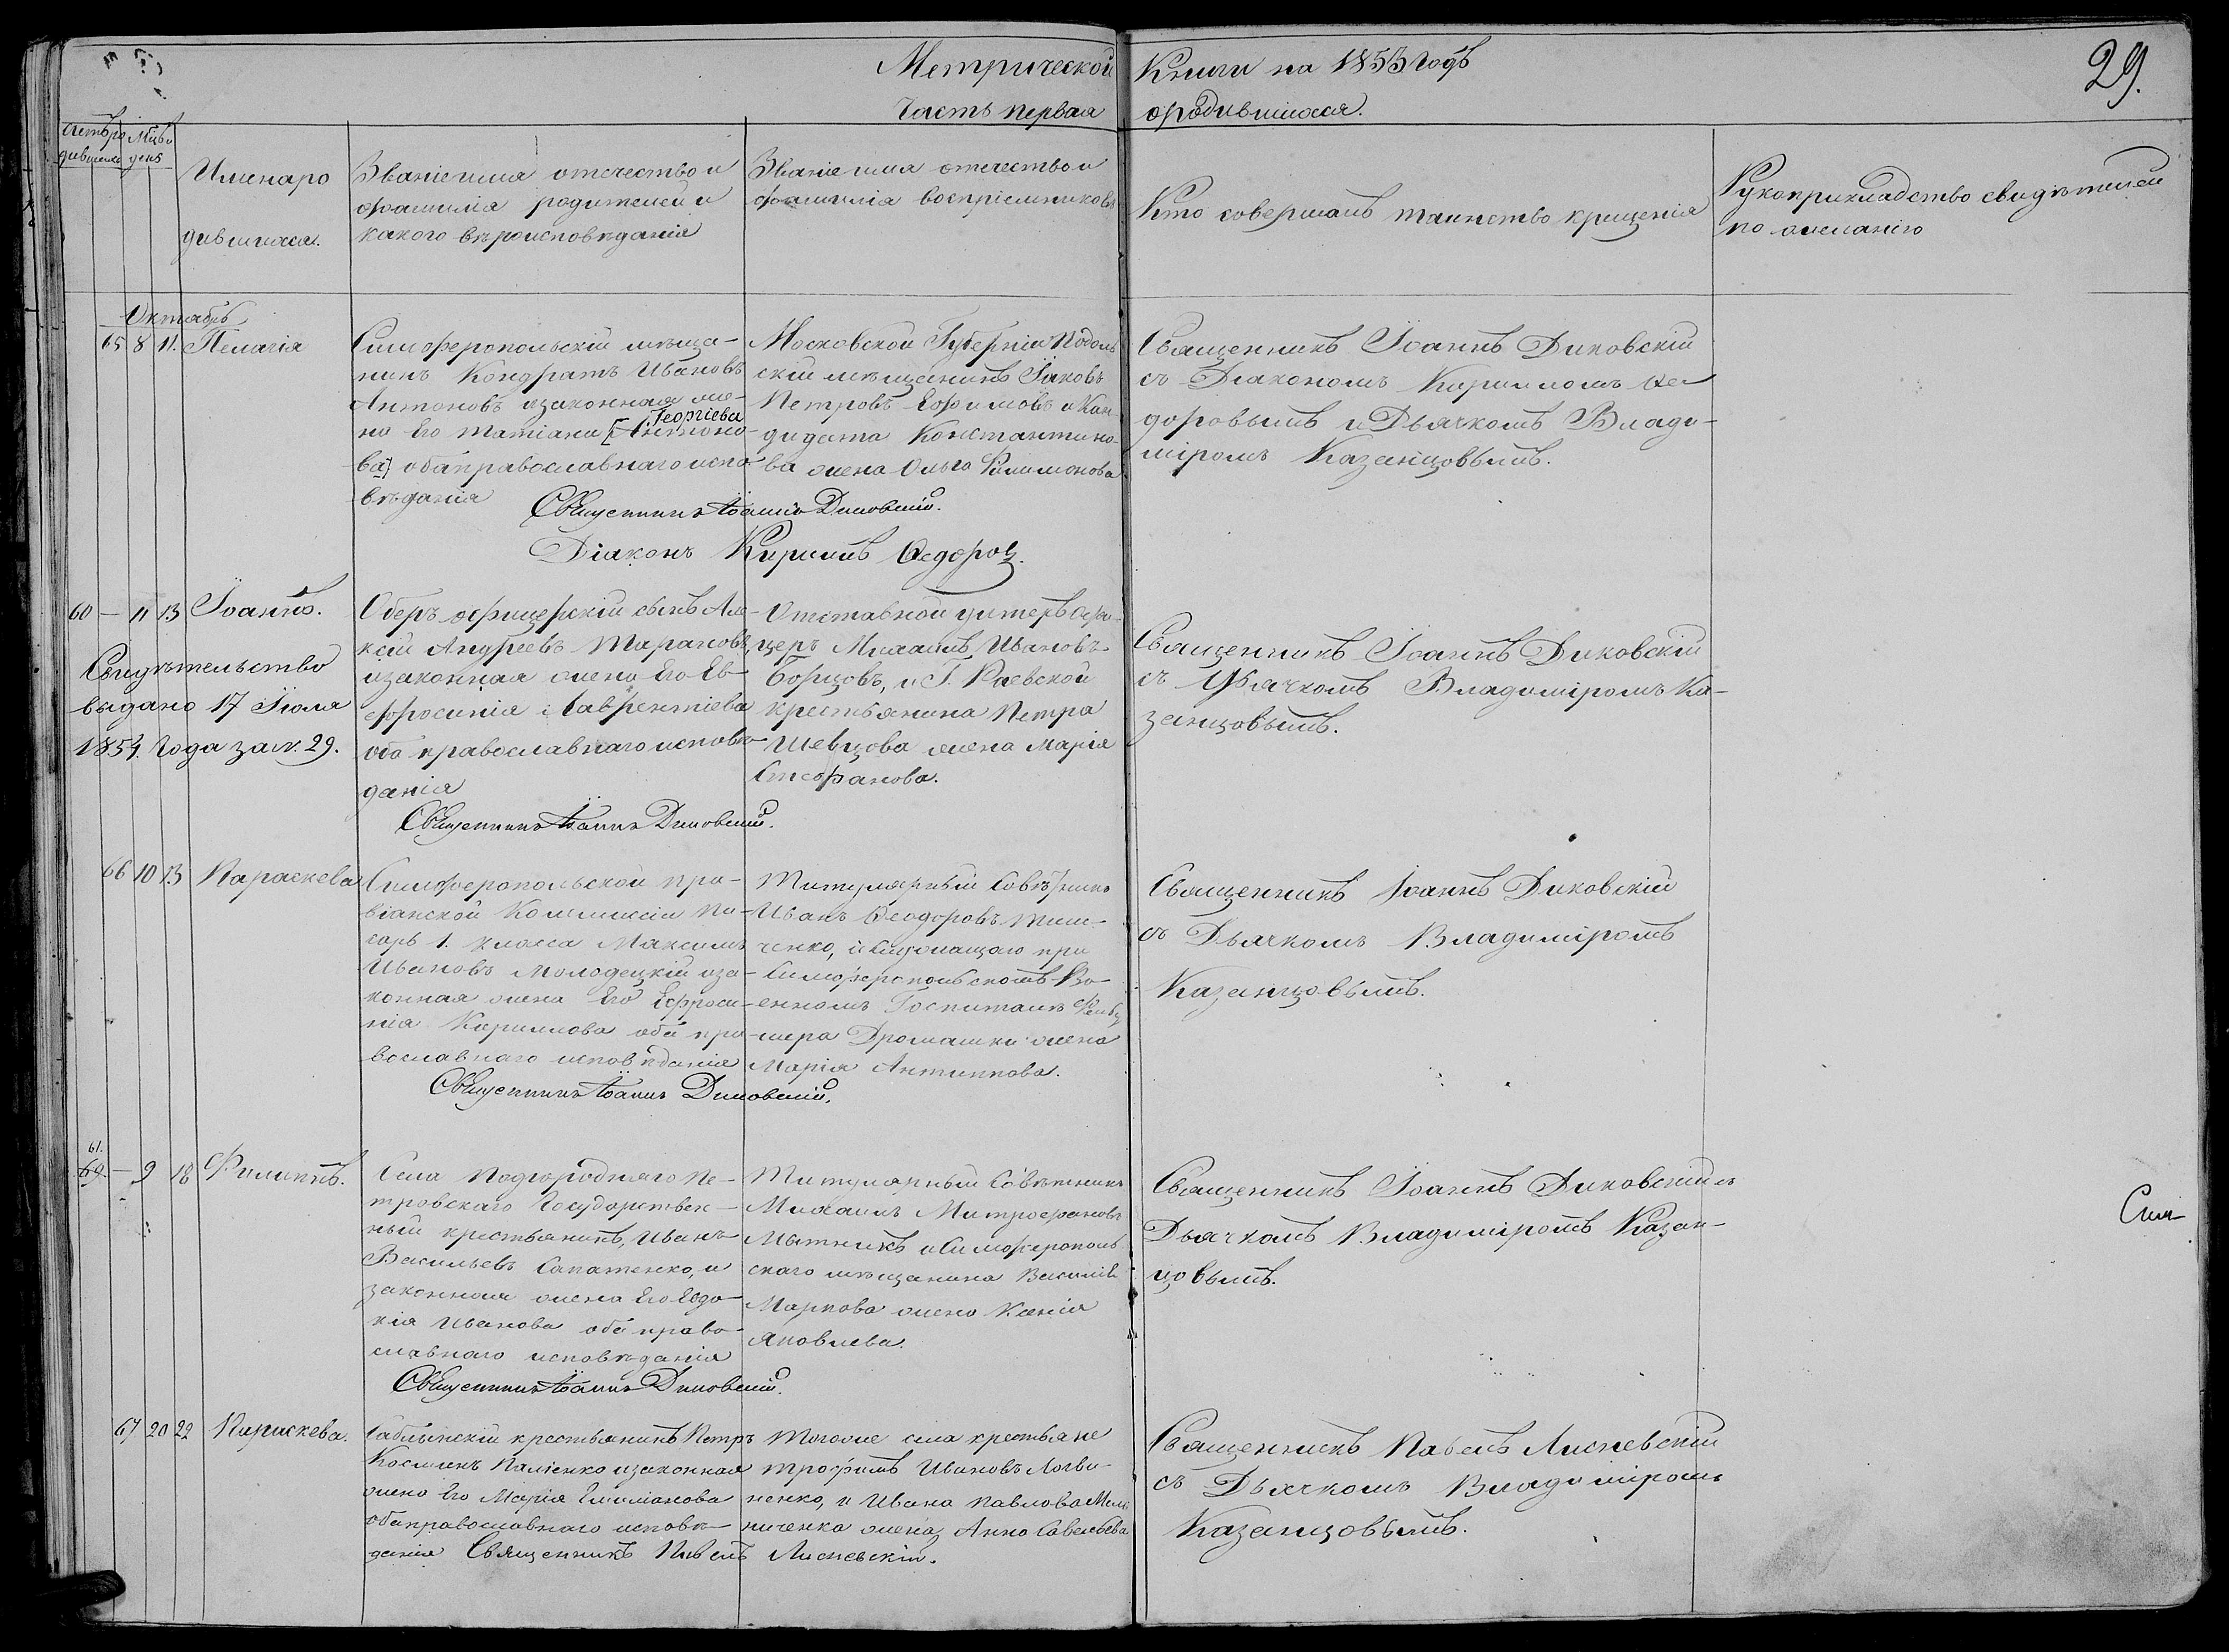 Метрической Книги на 1853 годъ
29.
Часть первая о родившихся.
Счетъ ро
дившихся
Мѣс. и
день
Имена ро
дившихся.
Званіе имя отечество и
фамилія родителей и
какого вѣроисповѣданія
Званіе имя отечество и
фамилія воспріемниковъ
Кто совершалъ таинство крещенія
Рукоприкладство свидѣтелей
по желанію
Октябрь
65 8 11. Пелагія
Симферопольскій мѣща-
нинъ Кондратъ Ивановъ
Антоновъ изаконная же-
Георгіева
на Его Татіана [Антоно-
ва] оба православнаго испо-
вѣданія
Московской Губерніи Подоль
скій мѣщанинъ Іаковъ
Петровъ Ефимовъ и Кан-
дидата Константино-
ва жена Ольга Филимонова
Священникъ Іоаннъ Диковскій
съ Діакономъ Кирилломъ Ѳео
доровымъ и Дьячкомъ Влади-
міромъ Казанцовымъ.
Священникъ Іоаннъ Диковскій.
Діаконъ Кириллъ Ѳедоровъ.
60 — 11 13 Іоаннъ.
Свидѣтельство
выдано 17 Іюля
1854 года за №. 29.
Оберъ офицерскій сынъ Але-
ксѣй Андреевъ Тарановъ
изаконная жена Его Ев-
фросинія Лаврентіева
оба православнаго исповѣ-
данія
Отставной унтеръ Офи-
церъ Михаилъ Ивановъ
Борцовъ, и Г. Раевской
крестьянина Петра
Шевцова жена Марія
Стефанова.
Священникъ Іоаннъ Диковскій
съ Дьячкомъ Владиміромъ Ка-
занцовымъ.
Священникъ Іоаннъ Диковскій.
66 10 13 Параскева
Симферопольской про-
віанской Коммиссіи пи-
сарь 1. класса Максимъ
Ивановъ Молодецкій иза-
конная жена Его Ефроси-
нія Кириллова оба пра-
вославнаго исповѣданія
Титулярный Совѣтникъ
Иванъ Ѳеодоровъ Тим-
ченко, и
при
Симферопольскомъ Во-
енномъ Госпиталѣ Фельд
шера Дромашки жена
Марія Антиппова.
Священникъ Іоаннъ Диковскій
съ Дьячкомъ Владиміромъ
Казанцовымъ.
Священникъ Іоаннъ Диковскій.
61.
69. — 9 18 Филиппъ.
Села Подгороднаго Пе-
тровскаго Государствен-
ный крестьянинъ, Иванъ
Васильевъ Сапатенко, и
законная жена Его Евдо-
кія Иванова оба право-
славнаго исповѣданія
Титулярный Совѣтникъ
Михаилъ Митрофановъ
Мытникъ и Симферополь
скаго мѣщанина Василія
Маркова жена Ксенія
Яковлева.
Священникъ Іоаннъ Диковскій съ
Дьячкомъ Владиміромъ Казан-
цовымъ.
Сим
Священникъ Іоаннъ Диковскій.
67 20 22 Параскева.
Саблынскій крестьянинъ Петръ
Косминъ Паліенко изаконная
жена Его Марія Емиліанова
оба православнаго исповѣ-
данія Священникъ Павелъ Лисневскій.
Тогоже села крестьяне
Трофимъ Ивановъ Логви-
ненко, и Ивана Павлова Мель
ниченка жена Анна Савельева
Священникъ Павелъ Лисневскій
съ Дьячкомъ Владиміромъ
Казанцовымъ.